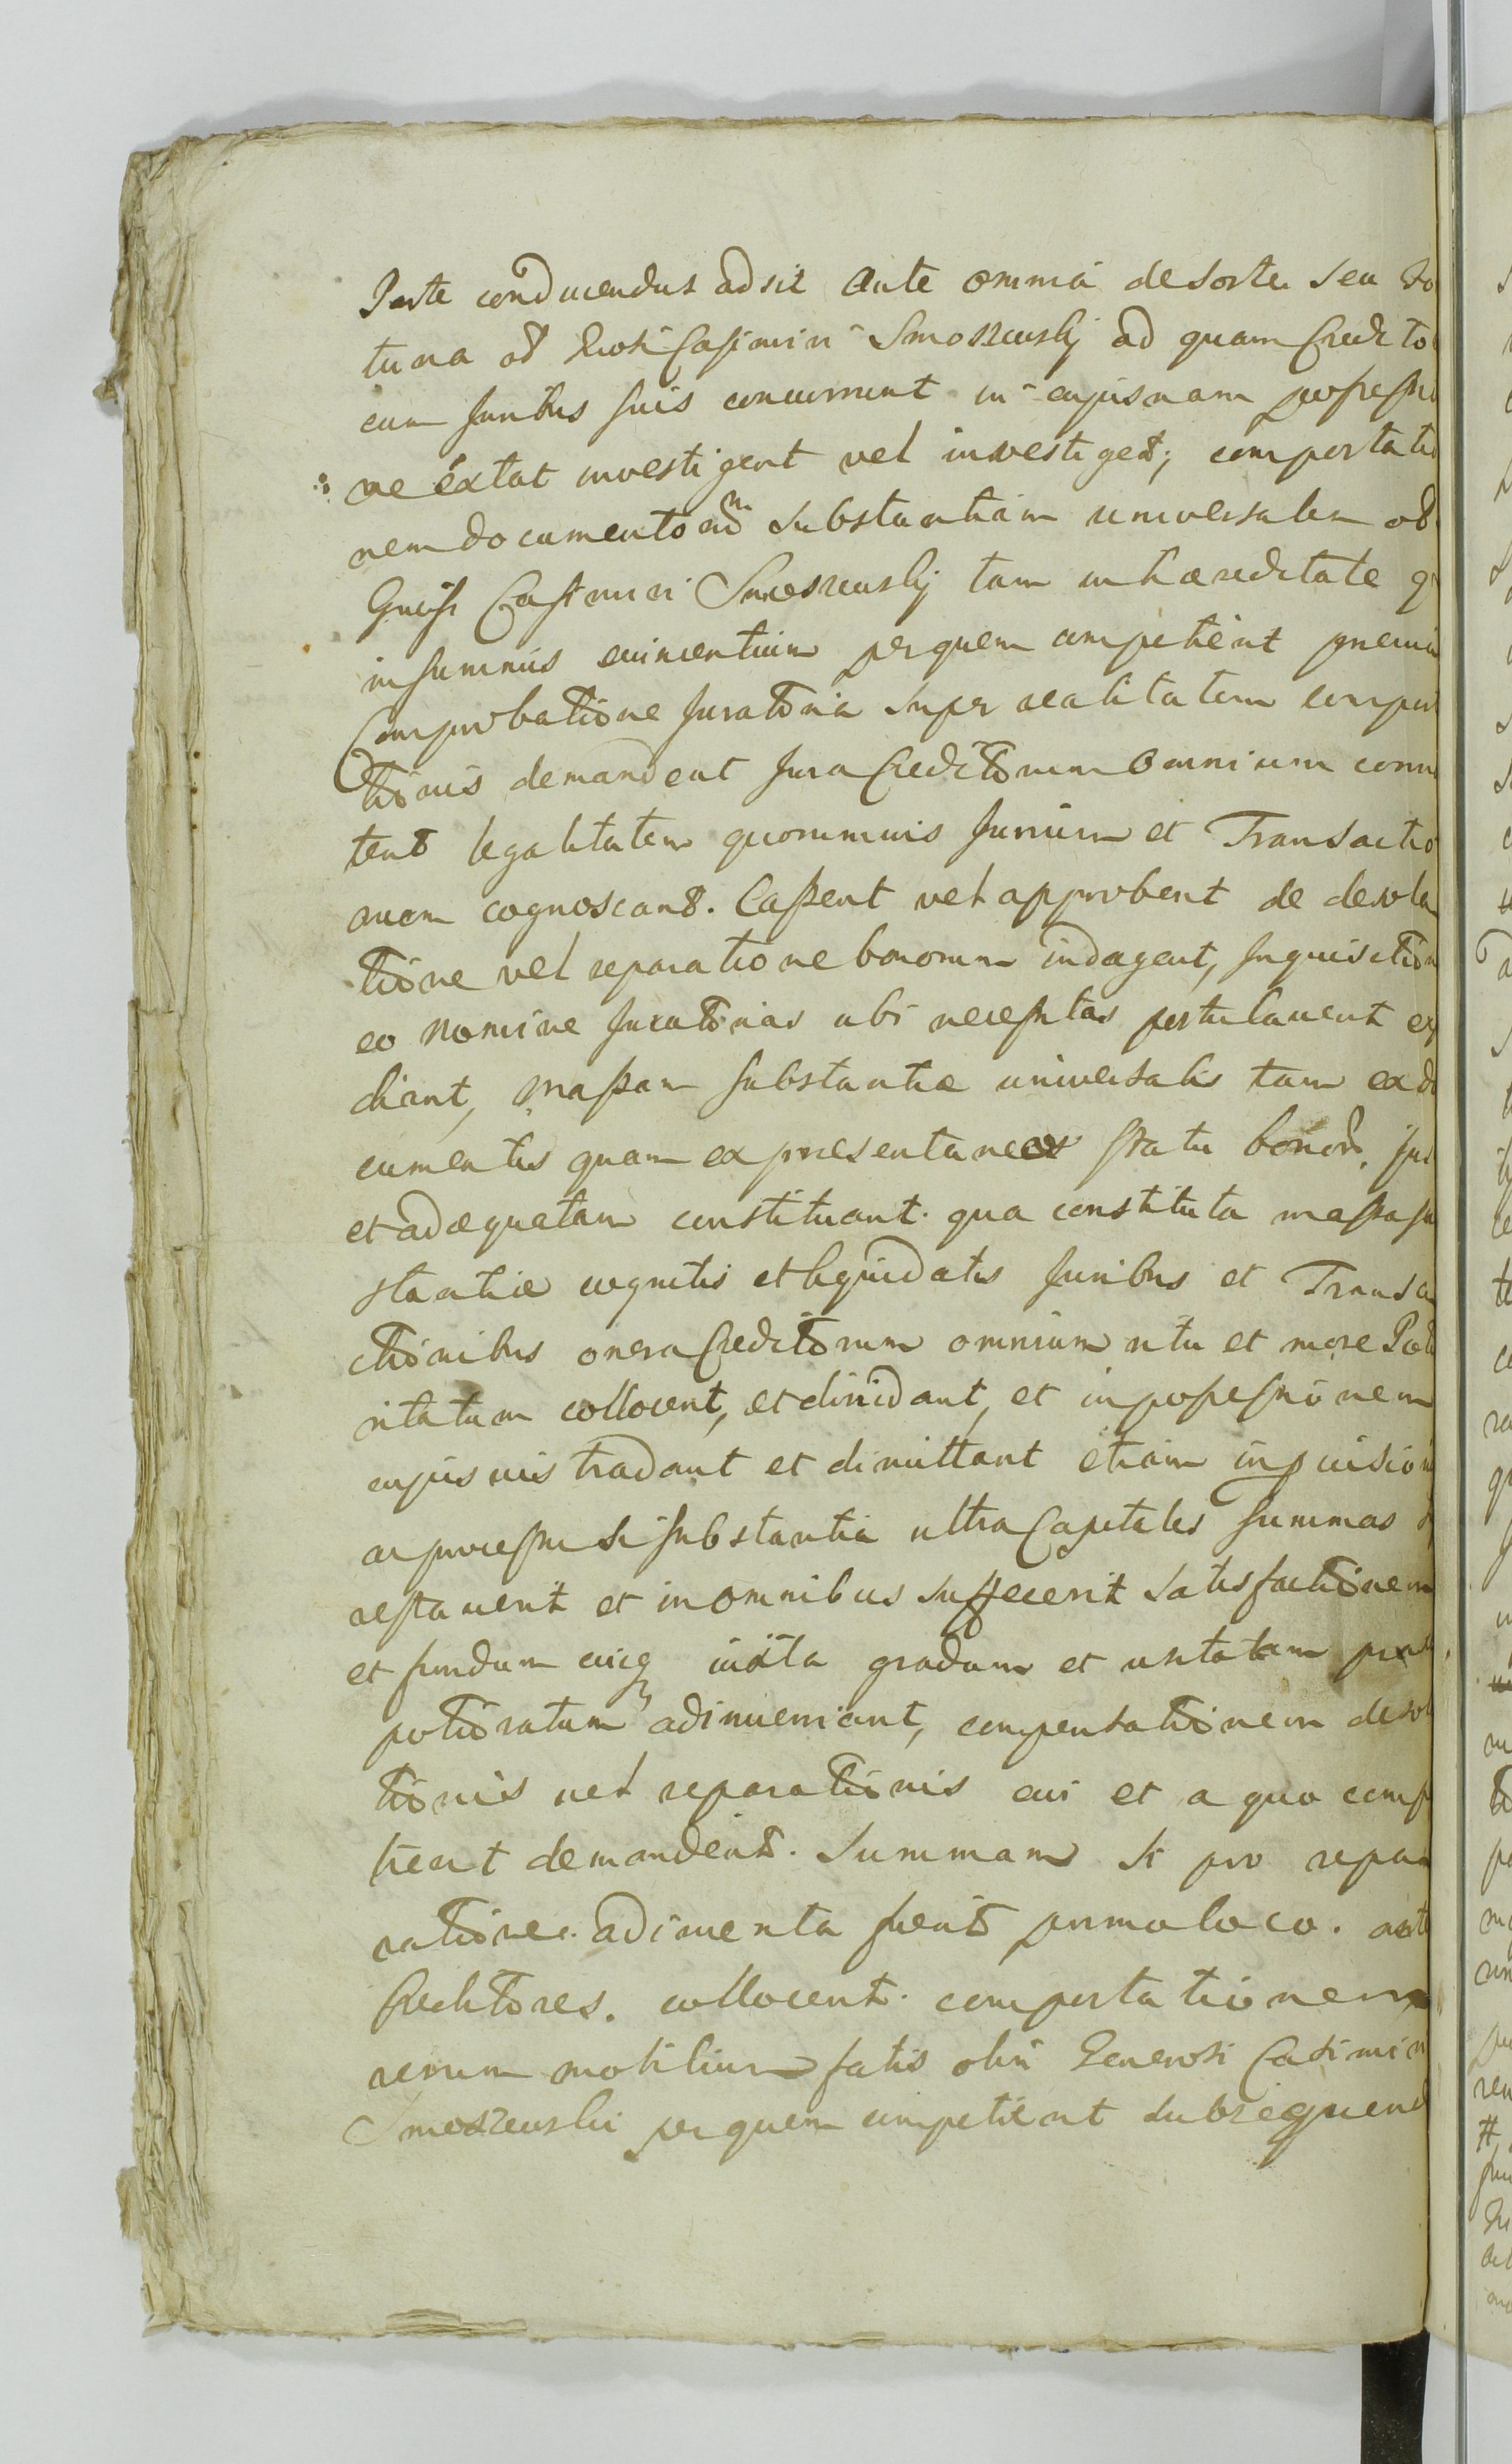 Parte conducendus adsit Ante omnia de sorte seu fo
tuna ol Grosi Casimiri Smoszewskj ad quam Credito
cum Juribus suis concurrunt in cujusnam possessio
ne éxtat investigent vel investiget; comportatio
nem documentorum Substantiam universalem ol
Gnosi Casimiri Smoszewskj tam in hæreditate q
in summis evincentium per quem competient praevia
Comprobatione Juratoria super realitatem comport
tionis demandent Jura Creditorum Omnium conno
tent legalitatem quorumvis Jurium et Transactio
num cognoscant. Cassent vel approbent de desola
tione vel reparatione bonorum indagent, Inquisition
eo nomine Juratorias ubi necessitas postulaverit ex
diant, Massam substantiæ universalis tam ex do
cumentis quam ex præsentaneo statu bonor. jus
et adæquatam constituant. qua constituta massa su
stantiæ cognitis et liquidatis Juribus et Transa
ctionibus onera Creditorum omnium ritu et more Poti
ritatum collocent, et dividant, et in possessionem
cujusvis tradant et dimittant etiam in provision
ac processu si substantia ultra Capitales summas
restaverit et in omnibus suffecerit satisfactionem
et fundum cuiq iuxta gradum et usitatam pra
potioratum adinveniant, compensationem desol
tionis vel reparationis cui et a quo comp
tient demandent. Summam si pro repa
ratione adinventa fuerit primo loco. ante
Creditores. collocent. comportationem
rerum mobilium fatis olim Generosi Casimiri
Smoszewski per quem competient subsequend